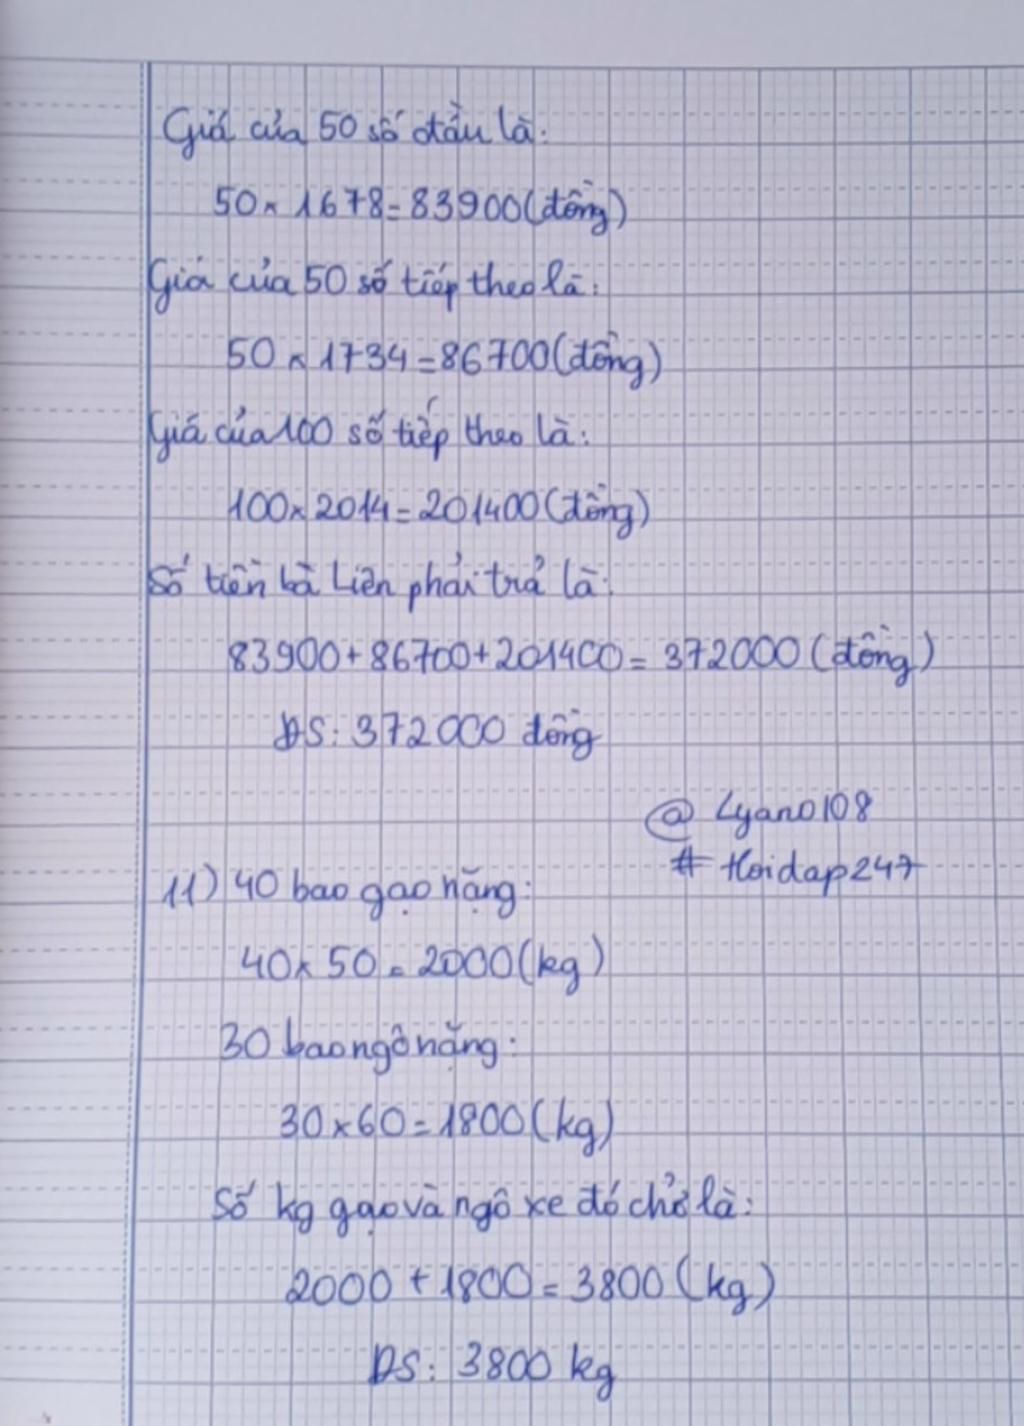 Giá của 50 số đầu là:
50 x 1678 = 83900 (đồng)
Giá của 50 số tiếp theo là:
50 x 1734 = 86700 (đồng)
Giá của 100 số tiếp theo là:
100 x 2014 = 201400 (đồng)
Số tiền bà Liên phải trả là:
83900 + 86700 + 201400 = 372000 (đồng)
ĐS: 372000 đồng
@ Lyano108
# Hoidap247
11) 40 bao gạo nặng:
40 x 50 = 2000 (kg)
30 bao ngô nặng:
30 x 60 = 1800 (kg)
Số kg gạo và ngô xe đó chở là:
2000 + 1800 = 3800 (kg)
ĐS: 3800 kg